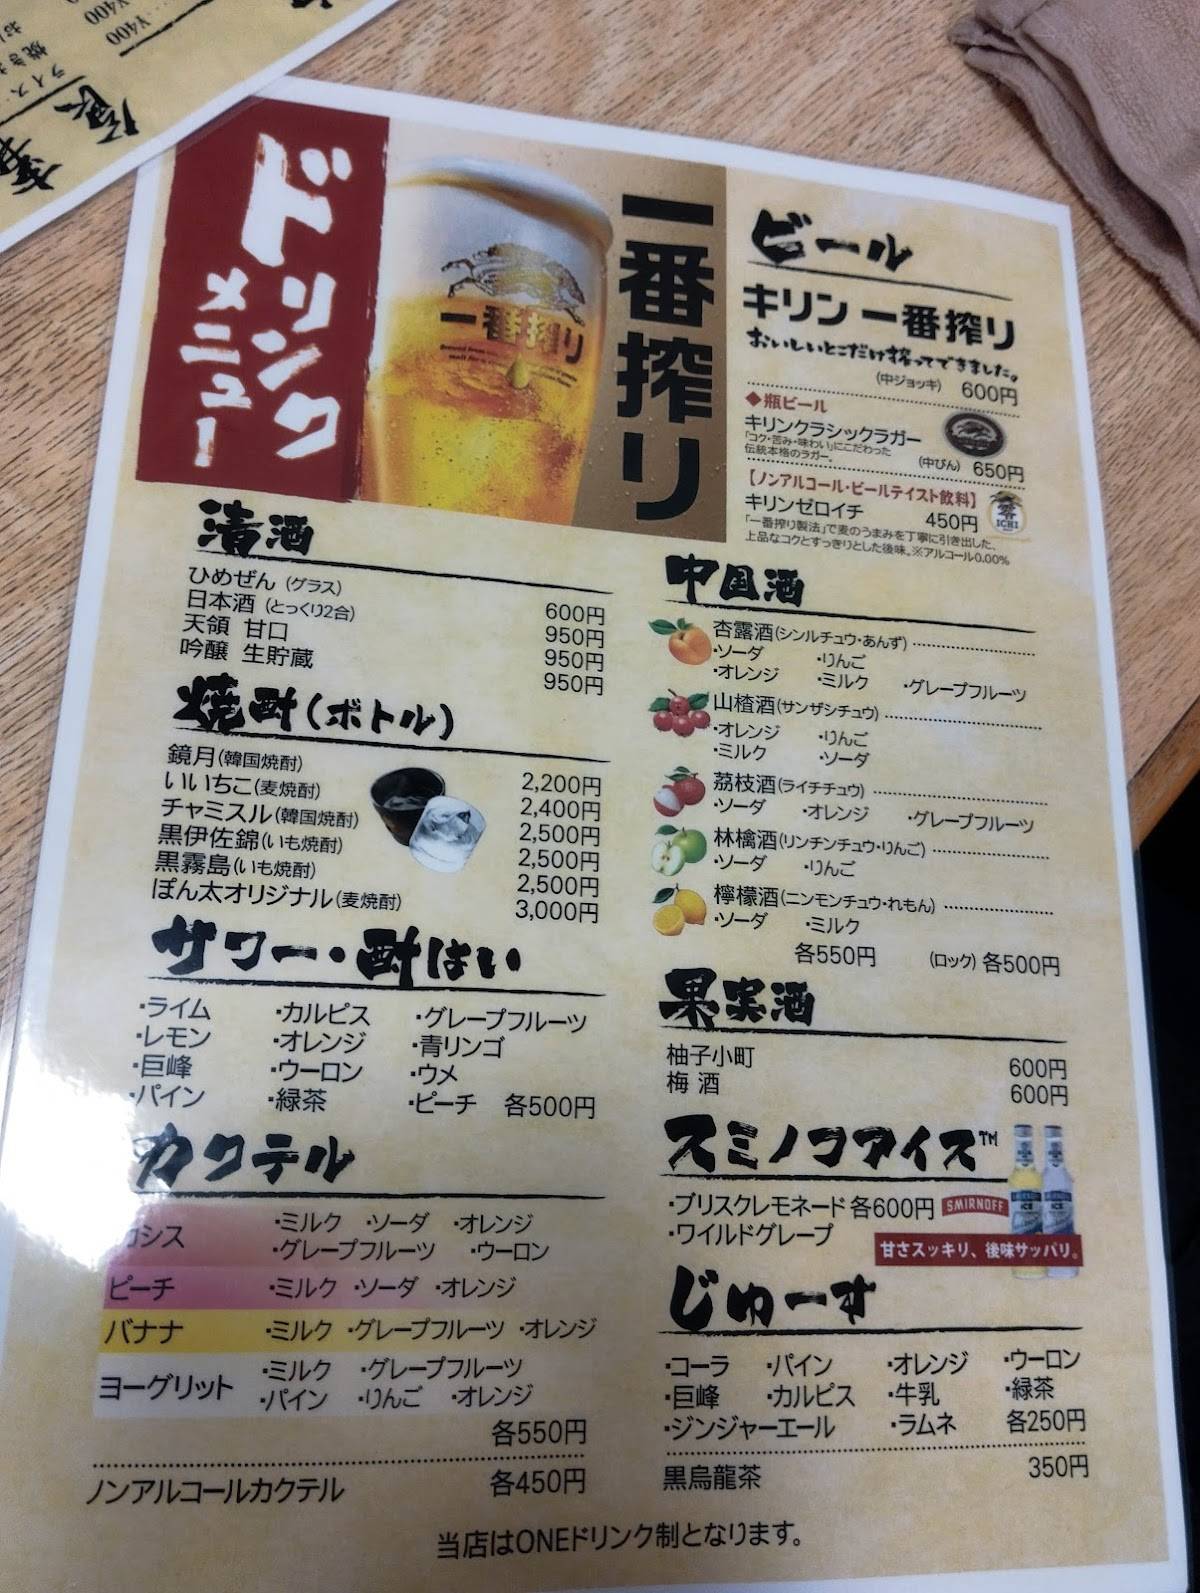 ¥400
¥400
ライス
ドリンク
メニュー
一番搾り
一番搾り
ビール
キリン一番搾り
おいしいとこだけ搾ってできました。
(中ジョッキ) 600円
◆瓶ビール
キリンクラシックラガー
「コク・苦み・味わい」にこだわった
伝統本格のラガー。
(中びん) 650円
【ノンアルコール・ビールテイスト飲料】
キリンゼロイチ 450円
零 ICHI
「一番搾り製法」で麦のうまみを丁寧に引き出した、
上品なコクとすっきりとした後味。※アルコール0.00%
清酒
ひめぜん (グラス) 600円
日本酒 (とっくり2合) 950円
天領 甘口 950円
吟醸 生貯蔵 950円
焼酎(ボトル)
鏡月(韓国焼酎) 2,200円
いいちこ(麦焼酎) 2,400円
チャミスル(韓国焼酎) 2,500円
黒伊佐錦(いも焼酎) 2,500円
黒霧島(いも焼酎) 2,500円
ぽん太オリジナル(麦焼酎) 3,000円
サワー・酎はい
・ライム ・カルピス ・グレープフルーツ
・レモン ・オレンジ ・青リンゴ
・巨峰 ・ウーロン ・ウメ
・パイン ・緑茶 ・ピーチ 各500円
カクテル
カシス ・ミルク ・ソーダ ・オレンジ
・グレープフルーツ ・ウーロン
ピーチ ・ミルク ・ソーダ ・オレンジ
バナナ ・ミルク ・グレープフルーツ ・オレンジ
ヨーグリット ・ミルク ・グレープフルーツ
・パイン ・りんご ・オレンジ
各550円
ノンアルコールカクテル 各450円
中国酒
杏露酒(シンルチュウ・あんず)
・ソーダ ・りんご
・オレンジ ・ミルク ・グレープフルーツ
山楂酒(サンザシチュウ)
・オレンジ ・りんご
・ミルク ・ソーダ
茘枝酒(ライチチュウ)
・ソーダ ・オレンジ ・グレープフルーツ
林檎酒(リンチンチュウ・りんご)
・ソーダ ・りんご
檸檬酒(ニンモンチュウ・れもん)
・ソーダ ・ミルク
各550円 (ロック) 各500円
果実酒
柚子小町 600円
梅酒 600円
スミノフアイス™
・ブリスクレモネード 各600円
・ワイルドグレープ
SMIRNOFF
甘さスッキリ、後味サッパリ。
じゅーす
・コーラ ・パイン ・オレンジ ・ウーロン
・巨峰 ・カルピス ・牛乳 ・緑茶
・ジンジャーエール ・ラムネ 各250円
黒烏龍茶 350円
当店はONEドリンク制となります。